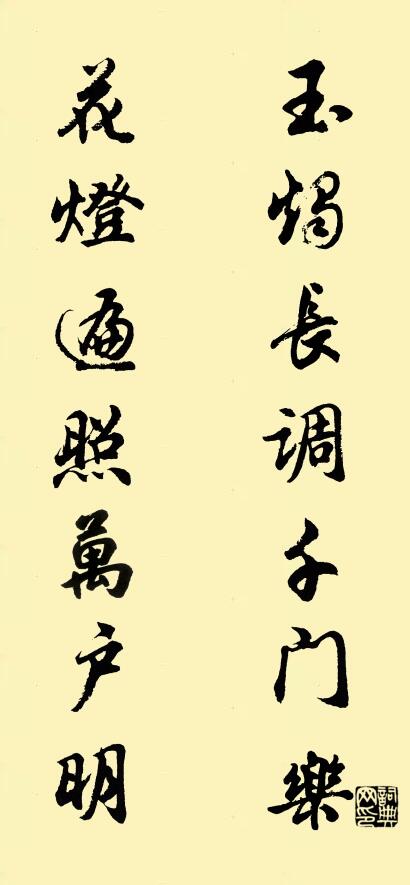 玉燭長調千门樂
花燈遍照萬户明
詞典网印